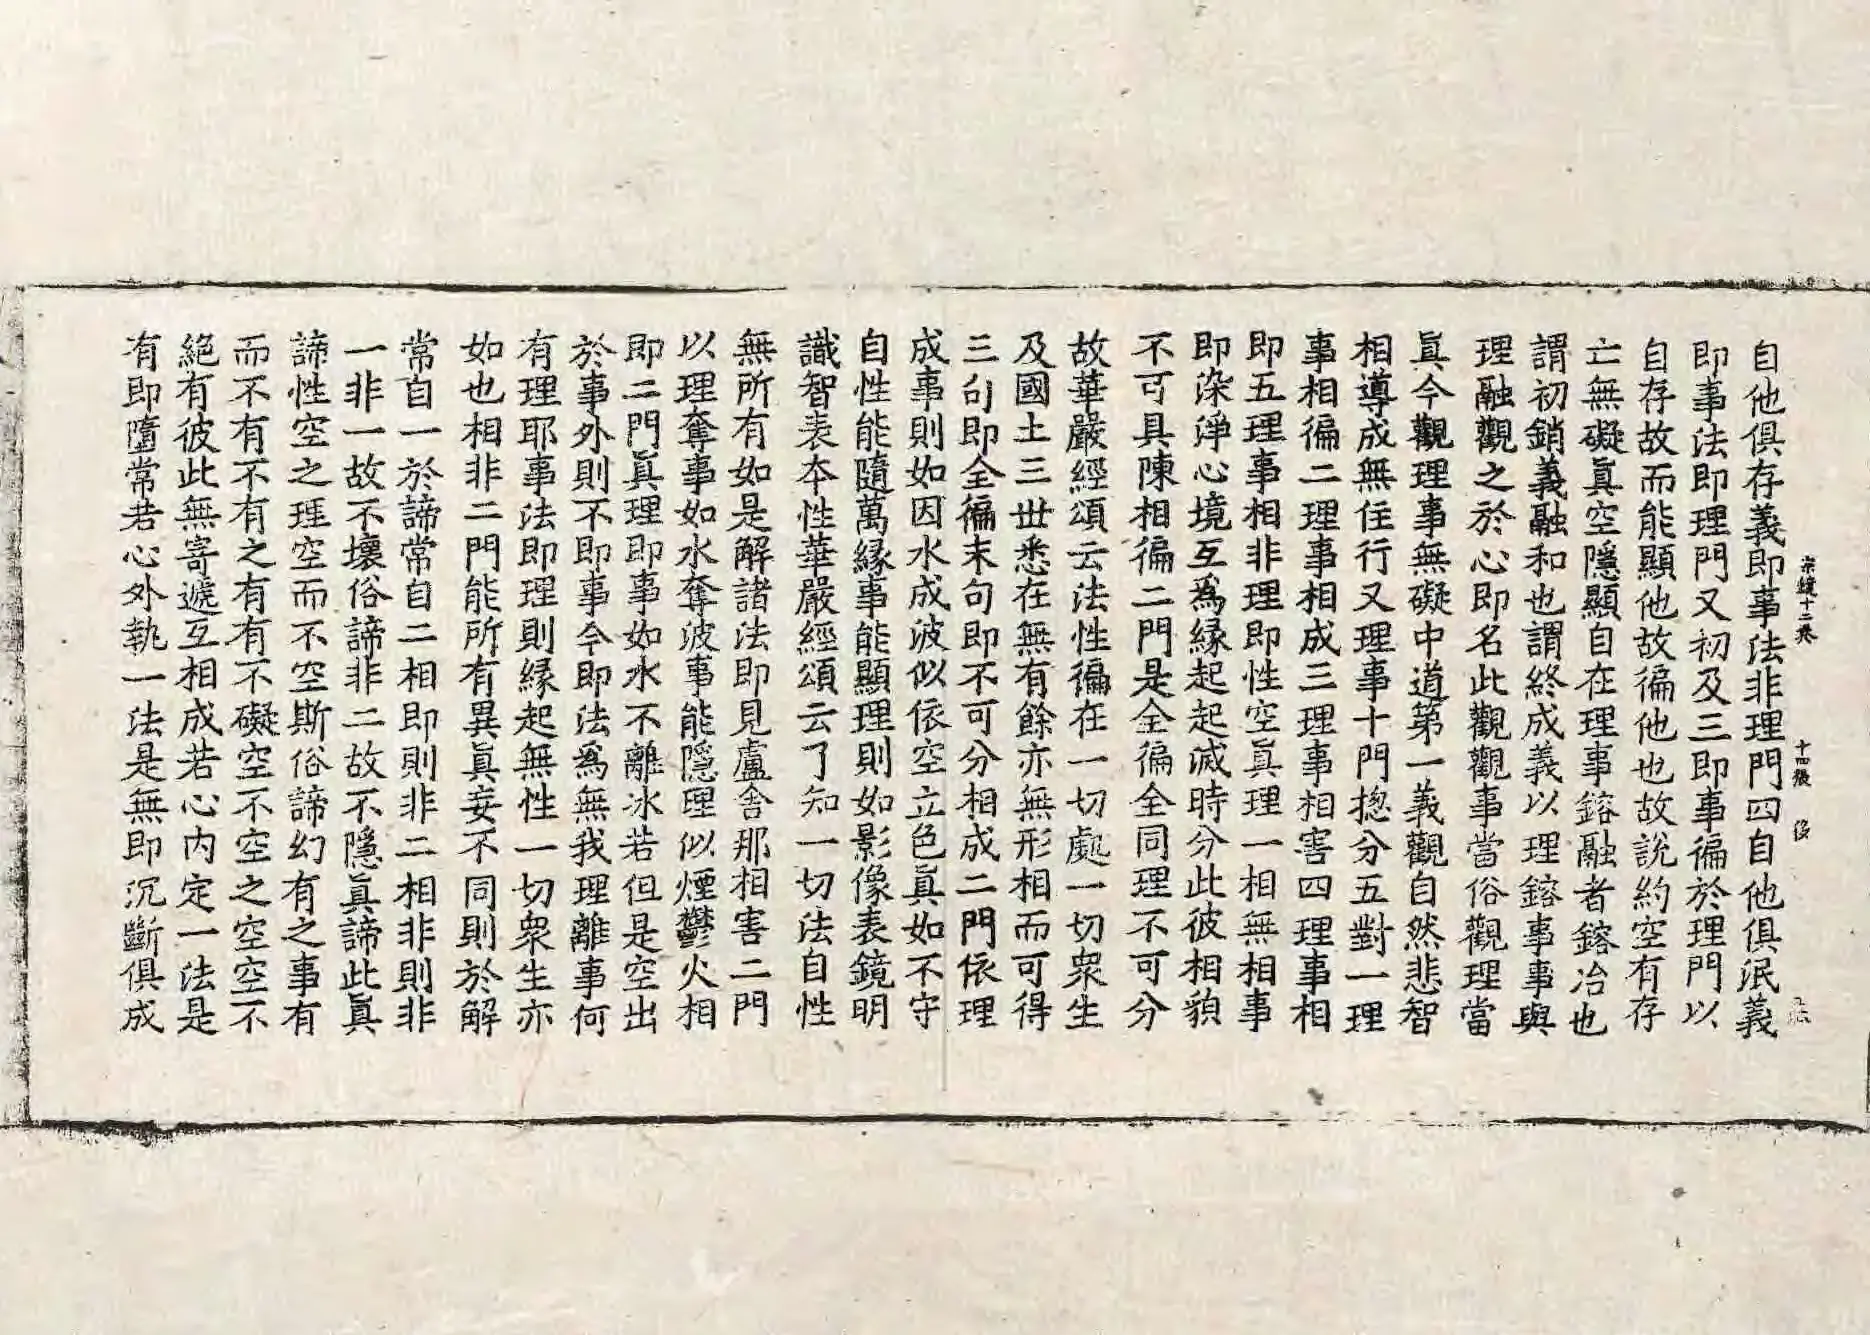 宗鏡十二卷 十四張
自他俱存義即事法非理門四自他俱泯義
即事法即理門又初及三即事徧於理門以
自存故而能顯他故徧他也故說約空有存
亡無礙眞空隱顯自在理事鎔融者鎔冶也
謂初銷義融和也謂終成義以理鎔事事與
理融觀之於心即名此觀觀事當俗觀理當
眞今觀理事無礙中道第一義觀自然悲智
相導成無住行又理事十門揔分五對一理
事相徧二理事相成三理事相害四理事相
即五理事相非理即性空眞理一相無相事
即染淨心境互爲緣起起滅時分此彼相貌
不可具陳相徧二門是全徧全同理不可分
故華嚴經頌云法性徧在一切處一切衆生
及國土三世悉在無有餘亦無形相而可得
三句即全徧末句即不可分相成二門依理
成事則如因水成波似依空立色眞如不守
自性能隨萬緣事能顯理則如影像表鏡明
識智表本性華嚴經頌云了知一切法自性
無所有如是解諸法即見盧舍那相害二門
以理奪事如水奪波事能隱理似煙鬱火相
即二門眞理即事如水不離冰若但是空出
於事外則不即事今即法爲無我理離事何
有理耶事法即理則緣起無性一切衆生亦
如也相非二門能所有異眞妄不同則於解
常自一於諦常自二相即則非二相非則非
一非一故不壞俗諦非二故不隱眞諦此眞
諦性空之理空而不空斯俗諦幻有之事有
而不有不有之有有不礙空不空之空空不
絕有彼此無寄遞互相成若心內定一法是
有即墮常若心外執一法是無即沉斷俱成